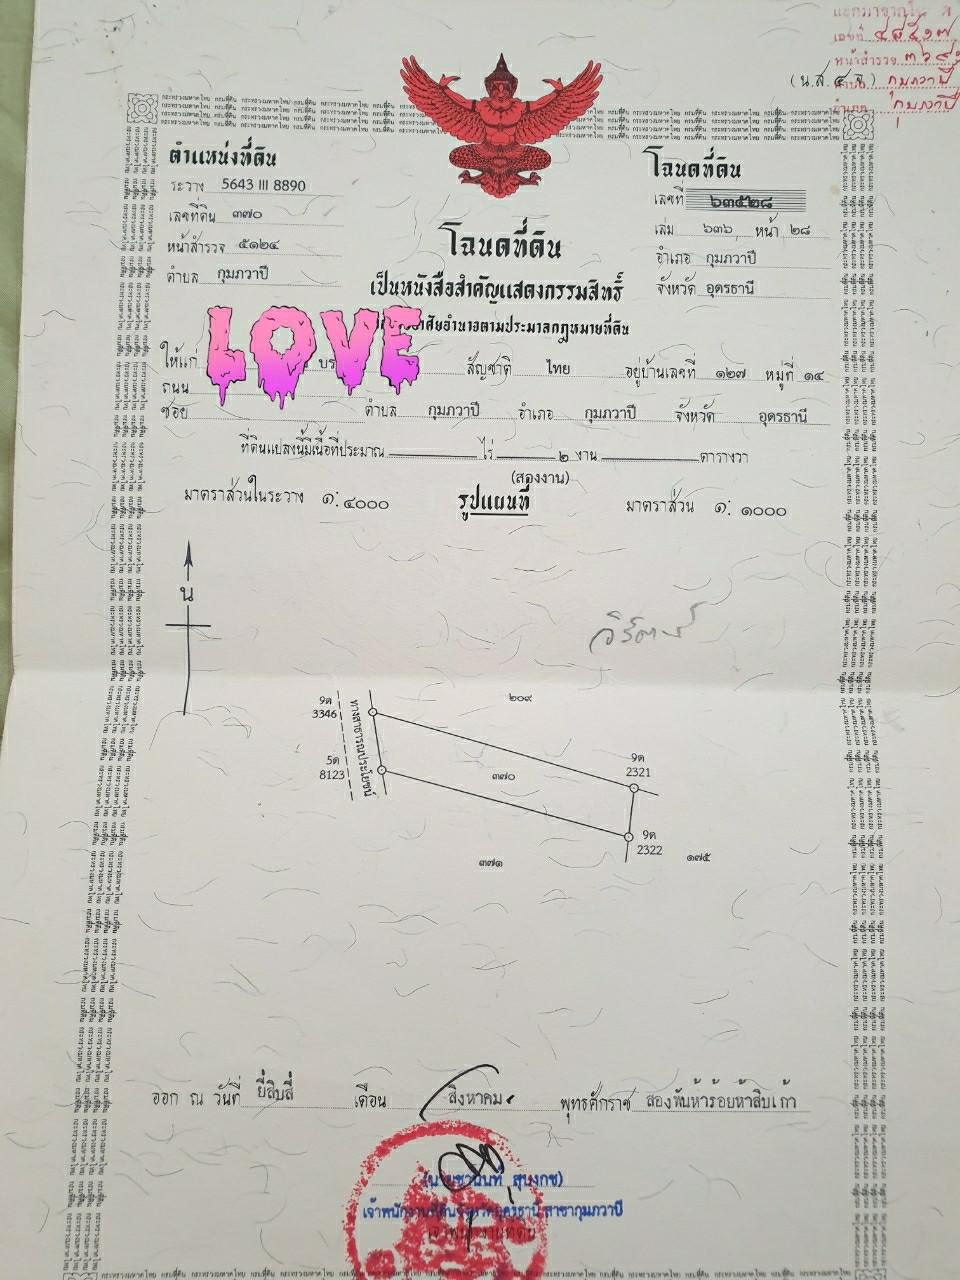 เลขที่ ๔๘๕๑๗
(น.ส. ๔ จ.) กุมภวาปี
กุมภวาปี
ตำแหน่งที่ดิน
ระวาง 5643 III 8890
เลขที่ดิน ๓๗๐
หน้าสำรวจ ๕๑๒๔
ตำบล กุมภวาปี
โฉนดที่ดิน
เลขที่ ๖๓๕๒๘
เล่ม ๖๓๖ หน้า ๒๘
อำเภอ กุมภวาปี
จังหวัด อุดรธานี
โฉนดที่ดิน
เป็นหนังสือสำคัญแสดงกรรมสิทธิ์
อาศัยอำนาจตามประมวลกฎหมายที่ดิน
LOVE
ให้แก่ สัญชาติ ไทย อยู่บ้านเลขที่ ๑๒๗ หมู่ที่ ๑๔
ถนน
ซอย ตำบล กุมภวาปี อำเภอ กุมภวาปี จังหวัด อุดรธานี
ที่ดินแปลงนี้มีเนื้อที่ประมาณ ไร่ ๒ งาน ตารางวา
(สองงาน)
มาตราส่วนในระวาง ๑: ๔๐๐๐ รูปแผนที่ มาตราส่วน ๑: ๑๐๐๐
น
๒๐๙
9ต
3346
ทางสาธารณประโยชน์
5ต
8123
๓๗๐
9ต
2321
9ต
2322
๓๗๑
๑๗๕
ออก ณ วันที่ ยี่สิบสี่ เดือน สิงหาคม พุทธศักราช สองพันห้าร้อยห้าสิบเก้า
เจ้าพนักงานที่ดินจังหวัดอุดรธานี สาขากุมภวาปี
เจ้าพนักงานที่ดิน